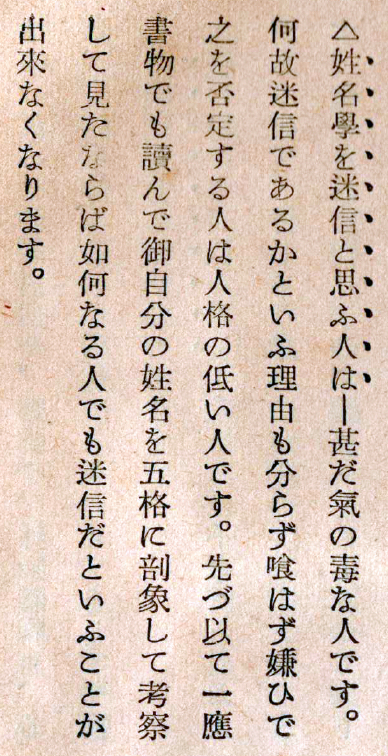 △姓名學を迷信と思ふ人は―甚だ氣の毒な人です。
何故迷信であるかといふ理由も分らず喰はず嫌ひで
之を否定する人は人格の低い人です。先づ以て一應
書物でも讀んで御自分の姓名を五格に剖象して考察
して見たならば如何なる人でも迷信だといふことが
出來なくなります。